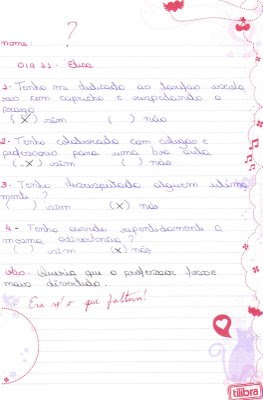 ?
nome:
DIA 33 - Ética
1- Tenho me dedicado as tarefas escola
res com capricho e respeitando o
prazo
( X ) sim ( ) não
2- Tenho colaborado com colegas e
professores para uma boa aula
( X ) sim ( ) não
3- Tenho desrespeitado alguem ultima
mente ?
( ) sim (X) não
4- Tenho ouvido repetidamente a
mesma advertência ?
( ) sim (X) não
Obs: Queria que o professor fosse
mais divertido.
Era só o que faltava!
tilibra